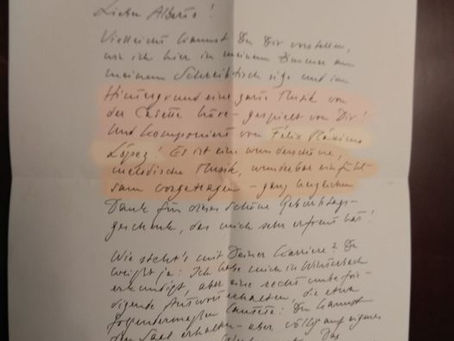 Lieber Alberto!
Vielleicht kannst Du Dir vorstellen,
wie ich hier in meinem Zimmer an
meinem Schreibtisch sitze und im
Hintergrund eine zarte Musik von
der Casette höre - gespielt von Dir!
Und komponiert von Félix Máximo
López! Es ist eine wunderschöne,
melodische Musik, wunderbar einfühl-
sam vorgetragen - ganz herzlichen
Dank für dieses schöne Geburtstags-
geschenk, das mich sehr erfreut hat!
Wie steht's mit Deiner Karriere? Du
weißt ja: Ich habe mich in
erkundigt, aber eine recht unbefrie-
digende Antwort erhalten, die etwa
folgendermaßen lautete: Du kannst
den Saal erhalten - aber völlig auf eigenes
Das